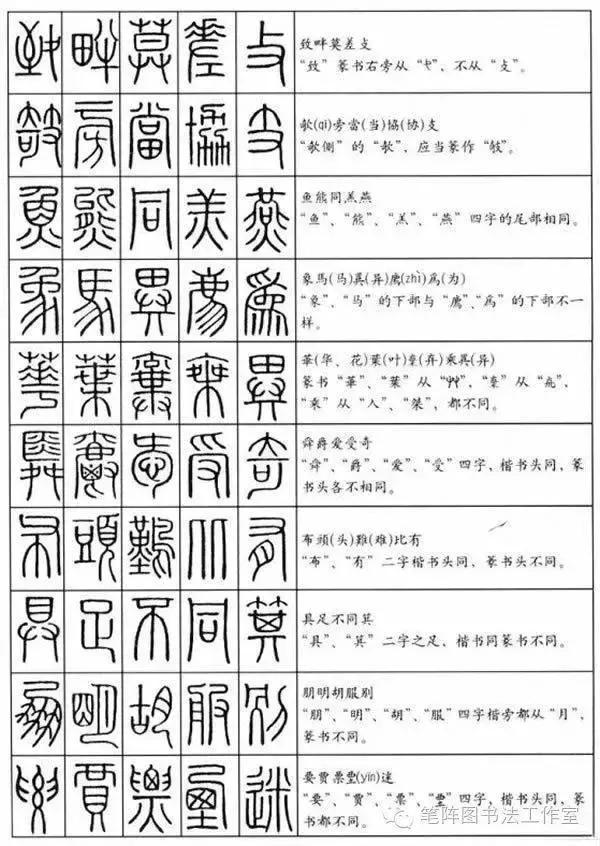 致畔莫差攴
“致”篆书右旁从“夂”，不从“攴”。
欹(qī)旁當(当)協(协)支
“欹侧”的“欹”，应当篆作“攲”。
鱼熊同羔燕
“鱼”、“熊”、“羔”、“燕”四字的尾部相同。
象馬(马)異(异)廌(zhì)爲(为)
“象”、“马”的下部与“廌”、“爲”的下部不一
样。
華(华、花)葉(叶)棄(弃)乘異(异)
篆书“華”、“葉”从“艸”，“棄”从“𠫓”，
“乘”从“入”、“桀”，都不同。
舜爵爱受奇
“舜”、“爵”、“爱”、“受”四字，楷书头同，篆
书头各不相同。
布頭(头)難(难)比有
“布”、“有”二字楷书头同、篆书头不同。
具足不同箕
“具”、“箕”二字之足，楷书同篆书不同。
朋明胡服别
“朋”、“明”、“胡”、“服”四字楷旁都从“月”，
篆书不同。
要贾票垔(yīn)迷
“要”、“贾”、“票”、“垔”四字，楷书头同、篆
书都不同。
笔阵图书法工作室